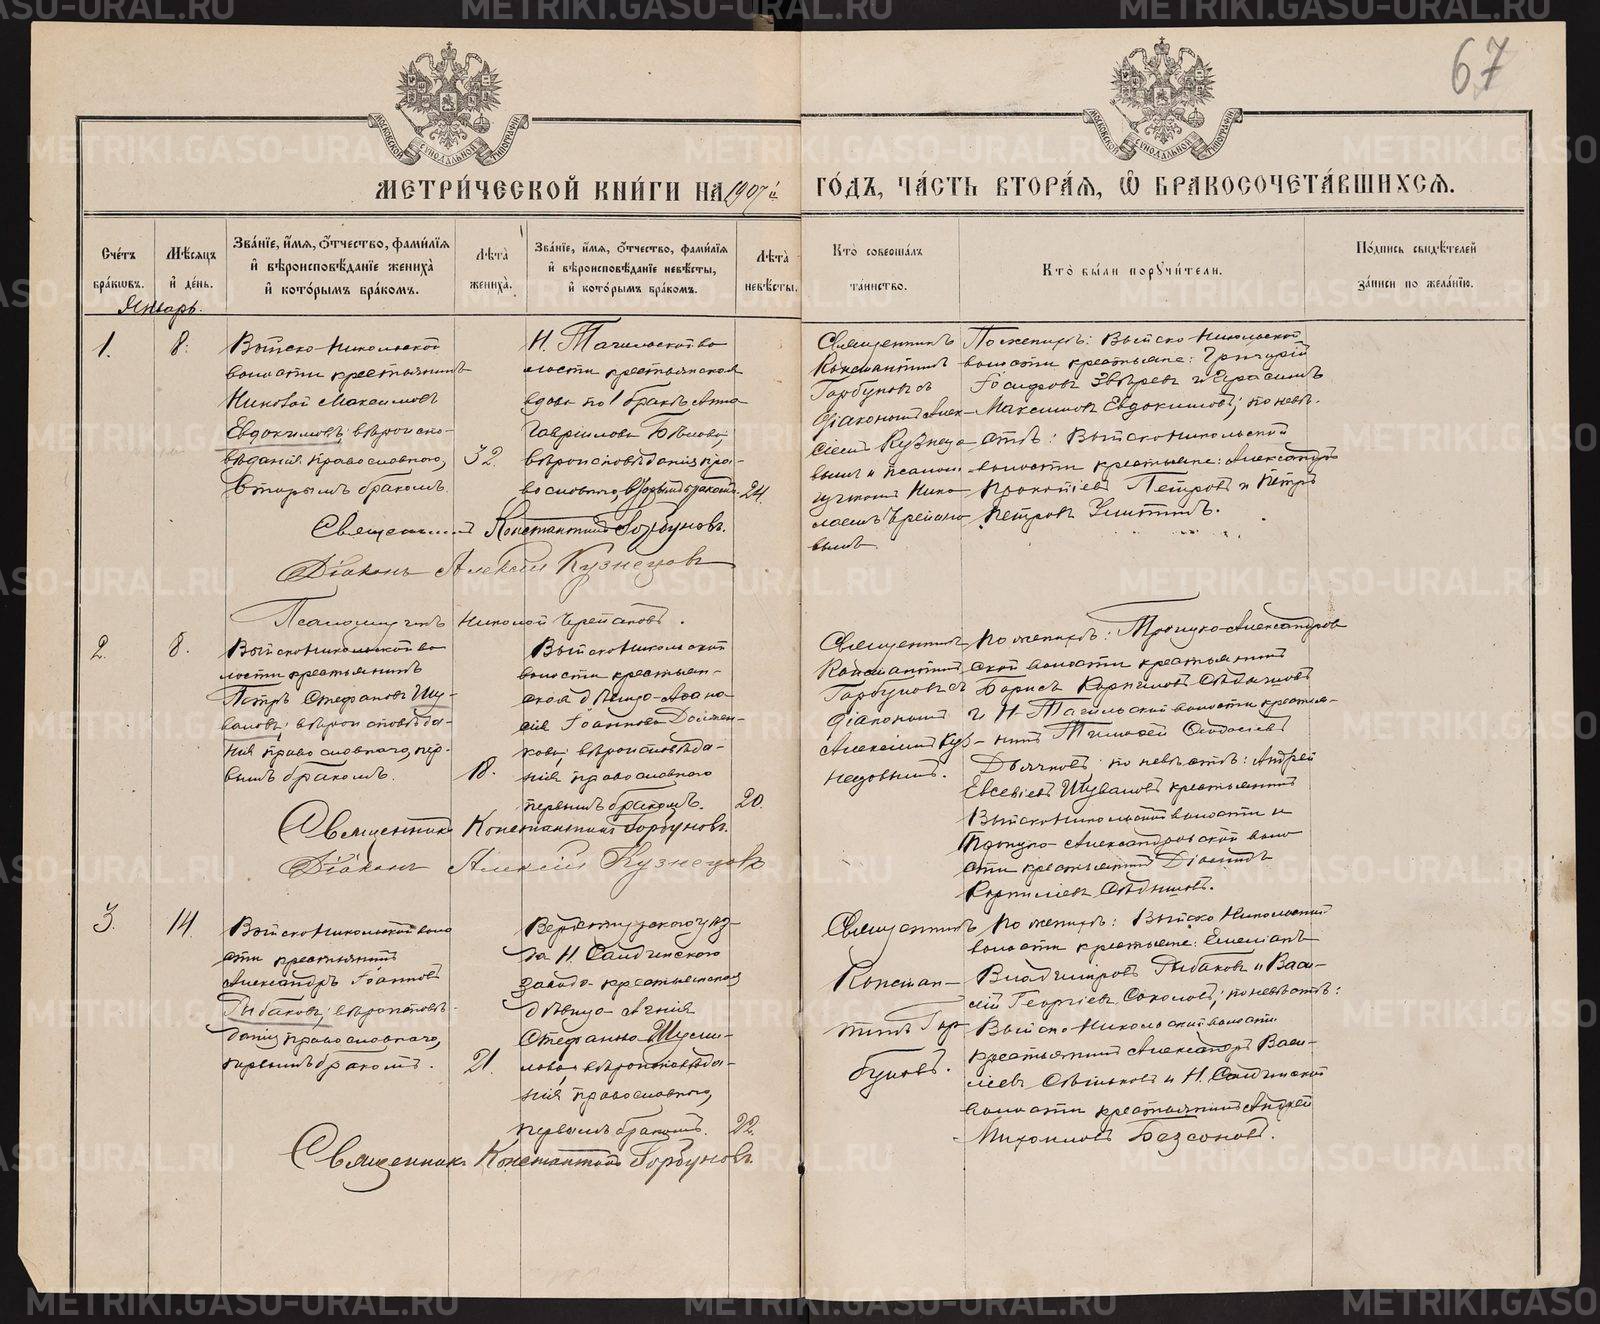 67
МОСКОВСКОЙ СѴНОДАЛЬНОЙ ТИПОГРАФІИ
МОСКОВСКОЙ СѴНОДАЛЬНОЙ ТИПОГРАФІИ
МЕТРИ́ЧЕСКОЙ КНИ́ГИ НА 1907 й
ГО́ДЪ, ЧА́СТЬ ВТОРА́Я, Ѽ БРАКОСОЧЕТА́ВШИХСЯ.
Сче́тъ бра́ковъ.
Мѣ́сяцъ и де́нь.
Зва́нїе, и́мя, о́тчество, фами́лїя и вѣроисповѣ́данїе жениха̀ и кото́рымъ бра́комъ.
Лѣ́та жениха̀.
Зва́нїе, и́мя, о́тчество, фами́лїя и вѣроисповѣ́данїе невѣ́сты, и кото́рымъ бра́комъ.
Лѣ́та невѣ́сты.
Кто̀ соверша́лъ таинство.
Кто̀ бы́ли порꙋчи́тели.
По́дпись свидѣ́телей за́писи по жела́нїю.
Январь.
1.
8.
Выйско-Никольской
волости крестьянинъ
Николай Максимовъ
Евдокимовъ, вѣроиспо-
вѣданія православнаго,
вторымъ бракомъ.
32.
Н. Тагильской во
лости крестьянская
вдова по 1 бракѣ Анна
Гаврилова Бѣлова
вѣроисповѣданія пра-
вославнаго, вторымъ бракомъ.
24.
Священникъ
Константинъ
Горбуновъ съ
діакономъ Алек-
сіемъ Кузнецо
вымъ и псалом
щикомъ Нико
лаемъ Черепано
вымъ
По женихѣ: Выйско-Никольской
волости крестьяне: Григорій
Іосифовъ Звѣревъ и Герасимъ
Максимовъ Евдокимовъ; по невѣ-
стѣ: Выйско Никольской
волости крестьяне: Александръ
Прокопіевъ Петровъ и Петръ
Петровъ
Священникъ Константинъ Горбуновъ.
Діаконъ Алексій Кузнецовъ
Псаломщикъ Николай Черепановъ.
2.
8.
Выйско Никольской во
лости крестьянинъ
Петръ Стефановъ Шу-
валовъ, вѣроисповѣда-
нія православнаго, пер-
вымъ бракомъ.
18.
Выйско Никольской
волости крестьян-
ская дѣвица Афана
сія Іоаннова
вѣроисповѣда-
нія православнаго
первымъ бракомъ.
20.
Священникъ
Константинъ
Горбуновъ съ
діакономъ
Алексіемъ Куз-
нецовымъ.
По женихѣ: Троицко-Александров
ской волости крестьянинъ
Борисъ Корниловъ Сѣдышовъ
и Н. Тагильской волости крестья-
нинъ Тимофей Феодосіевъ
Дьячковъ; по невѣстѣ: Андрей
Евсевіевъ Шуваловъ крестьянинъ
Выйско Никольской волости и
Троицко-Александровской воло
сти крестьянинъ
Корниліевъ Сѣдышовъ.
Священникъ Константинъ Горбуновъ.
Діаконъ Алексій Кузнецовъ
3.
14.
Выйско Никольской воло
сти крестьянинъ
Александръ Іоанновъ
Рыбаковъ, вѣроисповѣ-
данія православнаго,
первымъ бракомъ.
21.
Верхотурскаго уѣз-
да Н. Салдинскаго
завода крестьянская
дѣвица Агнія
Стефанова
вѣроисповѣда-
нія православнаго,
первымъ бракомъ.
22.
Священникъ
Констан-
тинъ Гор-
буновъ.
По женихѣ: Выйско Никольской
волости крестьяне: Емеліанъ
Владиміровъ Рыбаковъ и Васи-
лій Георгіевъ Соколовъ; по невѣстѣ:
Выйско-Никольской волости
крестьянинъ Александръ Васи-
ліевъ и Н. Салдинской
волости крестьянинъ Андрей
Михаиловъ Безсоновъ.
Священникъ Константинъ Горбуновъ.
METRIKI.GASO-URAL.RU